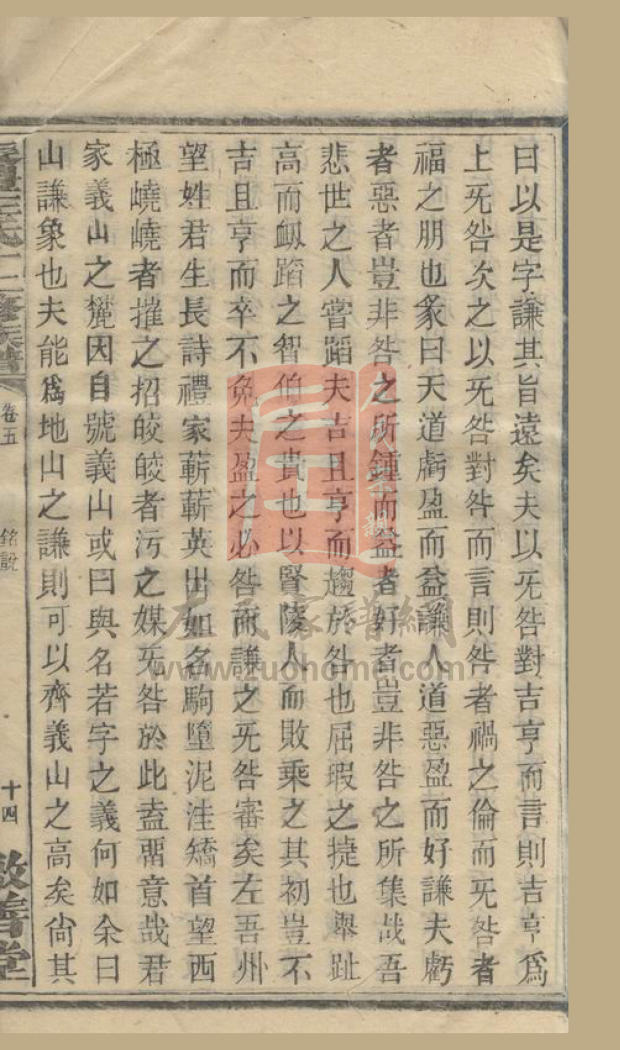 曰以是字謙其旨遠矣夫以旡咎對吉亨而言則吉亨爲
上旡咎次之以旡咎對咎而言則咎者禍之倫而旡咎者
福之朋也彖曰天道虧盈而益謙人道惡盈而好謙夫虧
者惡者豈非咎之所鍾而益者好者豈非咎之所集哉吾
悲世之人嘗蹈夫吉且亨而趨於咎也屈瑕之捷也舉趾
高而衂蹈之智伯之貴也以賢陵人而敗乘之其初豈不
吉且亨而卒不免夫盈之必咎而謙之旡咎審矣左吾州
望姓君生長詩禮家蔪蔪英出如名駒墮泥洼矯首望西
極嶢嶢者摧之招皎皎者污之媒旡咎於此盍畱意哉君
家義山之麓因自號義山或曰與名若字之義何如余曰
山謙象也夫能爲地山之謙則可以齊義山之高矣尙其
卷五
銘說
十四
敦善堂
左氏家譜網
www.zuohome.com